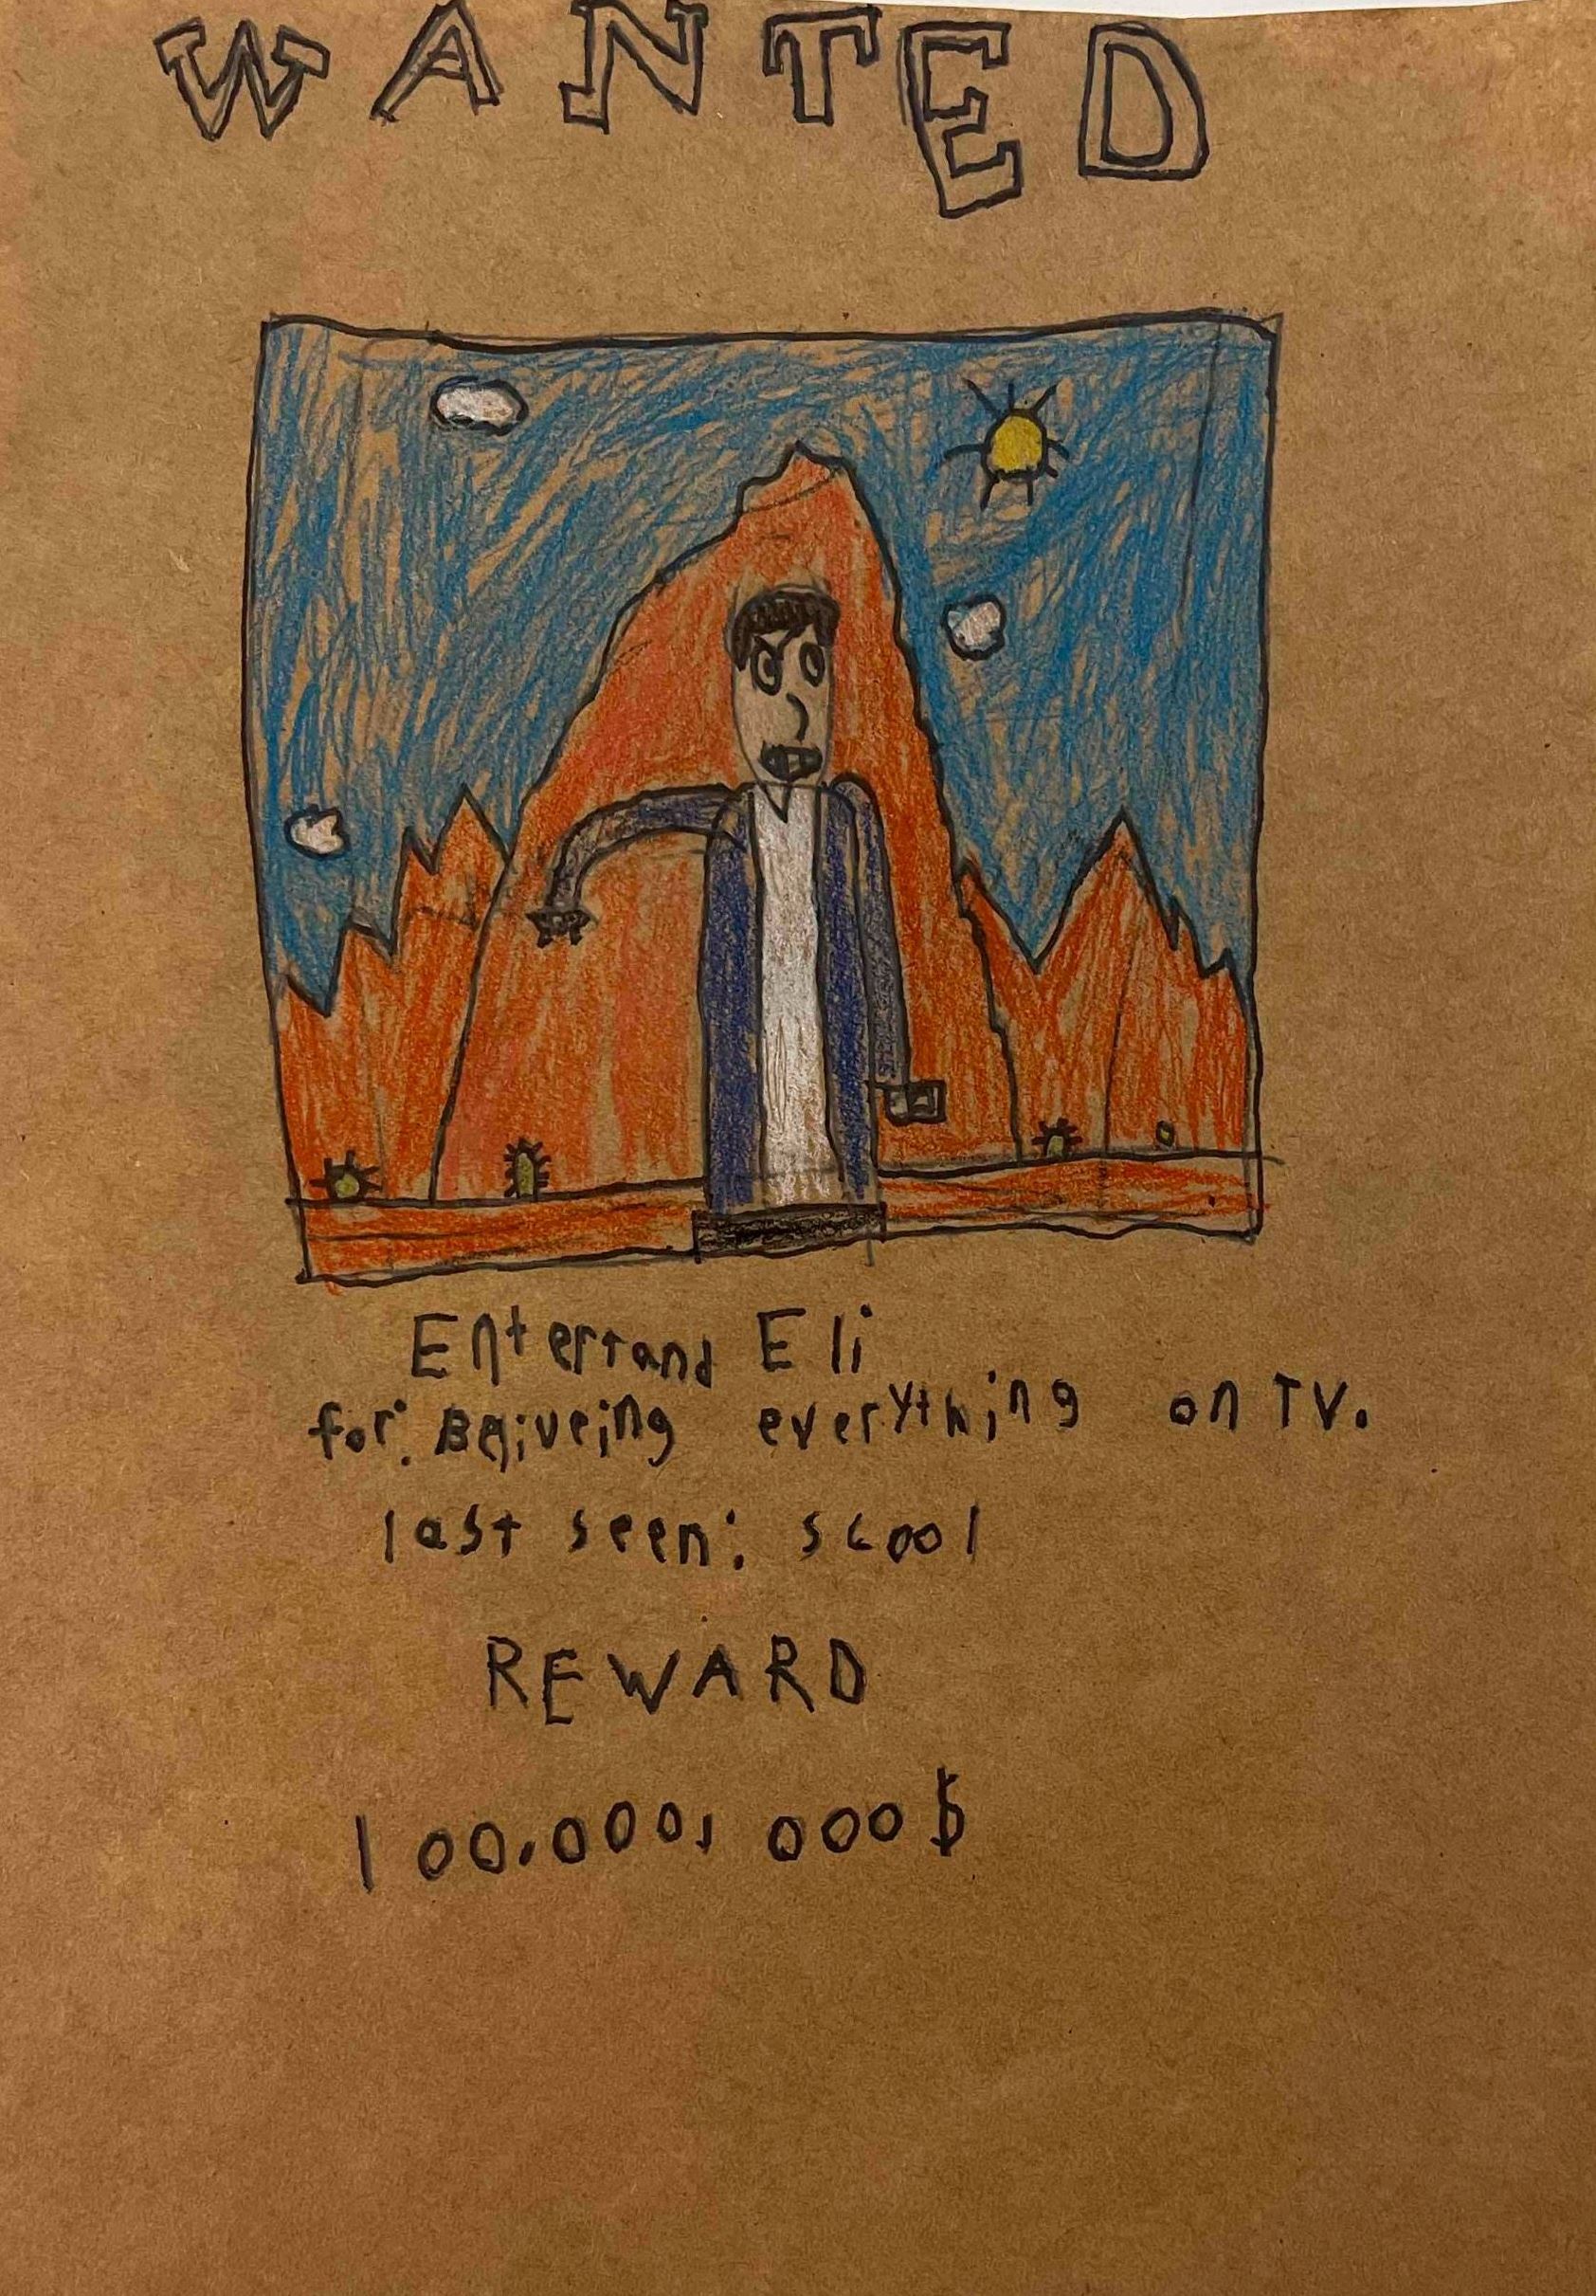 WANTED
Entertand Eli
for: Beiiveing everything on TV.
last seen: scool
REWARD
100.000, 000$